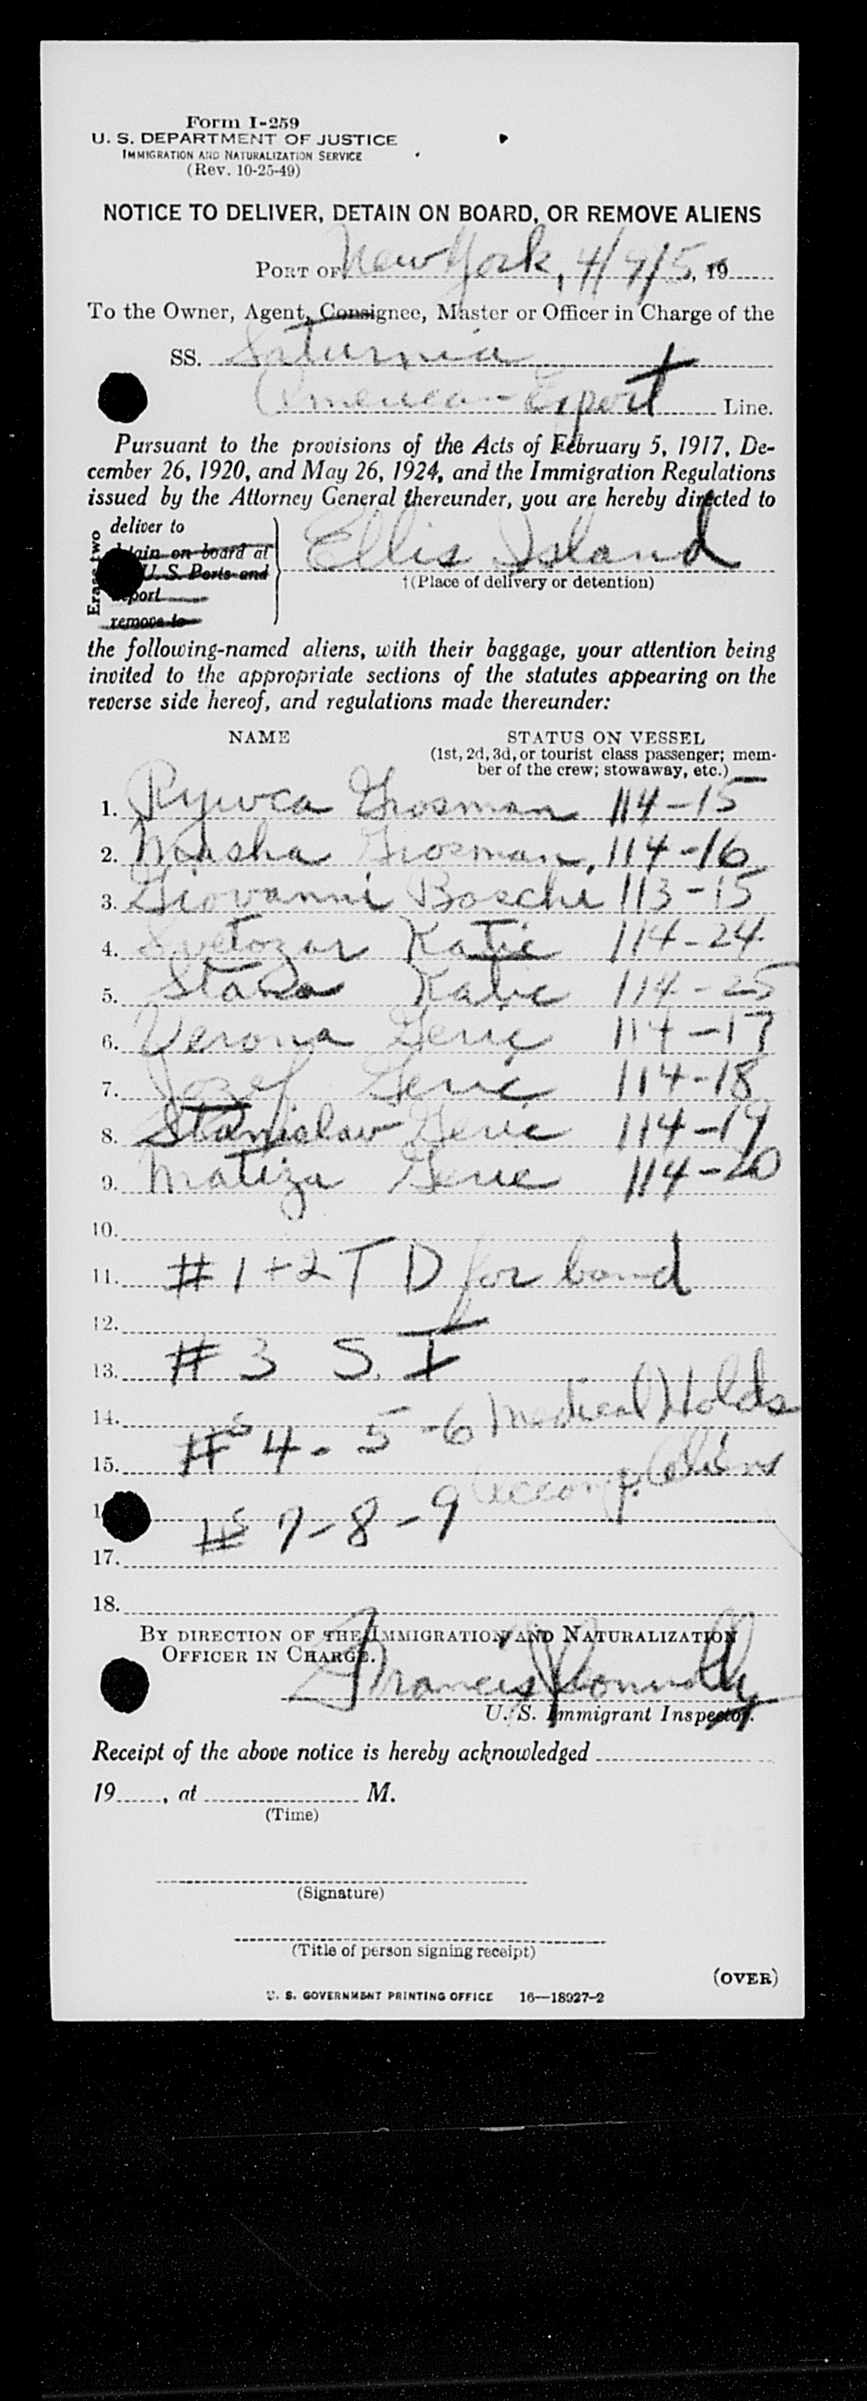 Form I-259
U. S. DEPARTMENT OF JUSTICE
IMMIGRATION AND NATURALIZATION SERVICE
(Rev. 10-25-49)
NOTICE TO DELIVER, DETAIN ON BOARD, OR REMOVE ALIENS
PORT OF New York, 4/9/5, 19
To the Owner, Agent, Consignee, Master or Officer in Charge of the
SS. Saturnia
American-Export Line.
Pursuant to the provisions of the Acts of February 5, 1917, De-
cember 26, 1920, and May 26, 1924, and the Immigration Regulations
issued by the Attorney General thereunder, you are hereby directed to
Erase two
deliver to
detain on board at
U. S. Ports and
deport
remove to
Ellis Island
†(Place of delivery or detention)
the following-named aliens, with their baggage, your attention being
invited to the appropriate sections of the statutes appearing on the
reverse side hereof, and regulations made thereunder:
NAME STATUS ON VESSEL
(1st, 2d, 3d, or tourist class passenger; mem-
ber of the crew; stowaway, etc.)
1. Rywca Grosman 114-15
2. Masha Grosman, 114-16
3. Giovanni Boschi 113-15
4. Svetozar Katic 114-24
5. Stana Katic 114-25
6. Verona Geric 114-17
7. Jozef Geric 114-18
8. Stanislav Geric 114-19
9. Matiza Geric 114-20
10.
11. #1+2 T D for bond
12.
13. #3 S. I
14. Medical Holds
#s 4-5-6
15.
Accomp. Aliens
#s 7-8-9
17.
18.
BY DIRECTION OF THE IMMIGRATION AND NATURALIZATION
OFFICER IN CHARGE.
Francis Connolly
U. S. Immigrant Inspector.
Receipt of the above notice is hereby acknowledged
19......, at .................... M.
(Time)
(Signature)
(Title of person signing receipt)
(OVER)
U. S. GOVERNMENT PRINTING OFFICE 16—18927-2